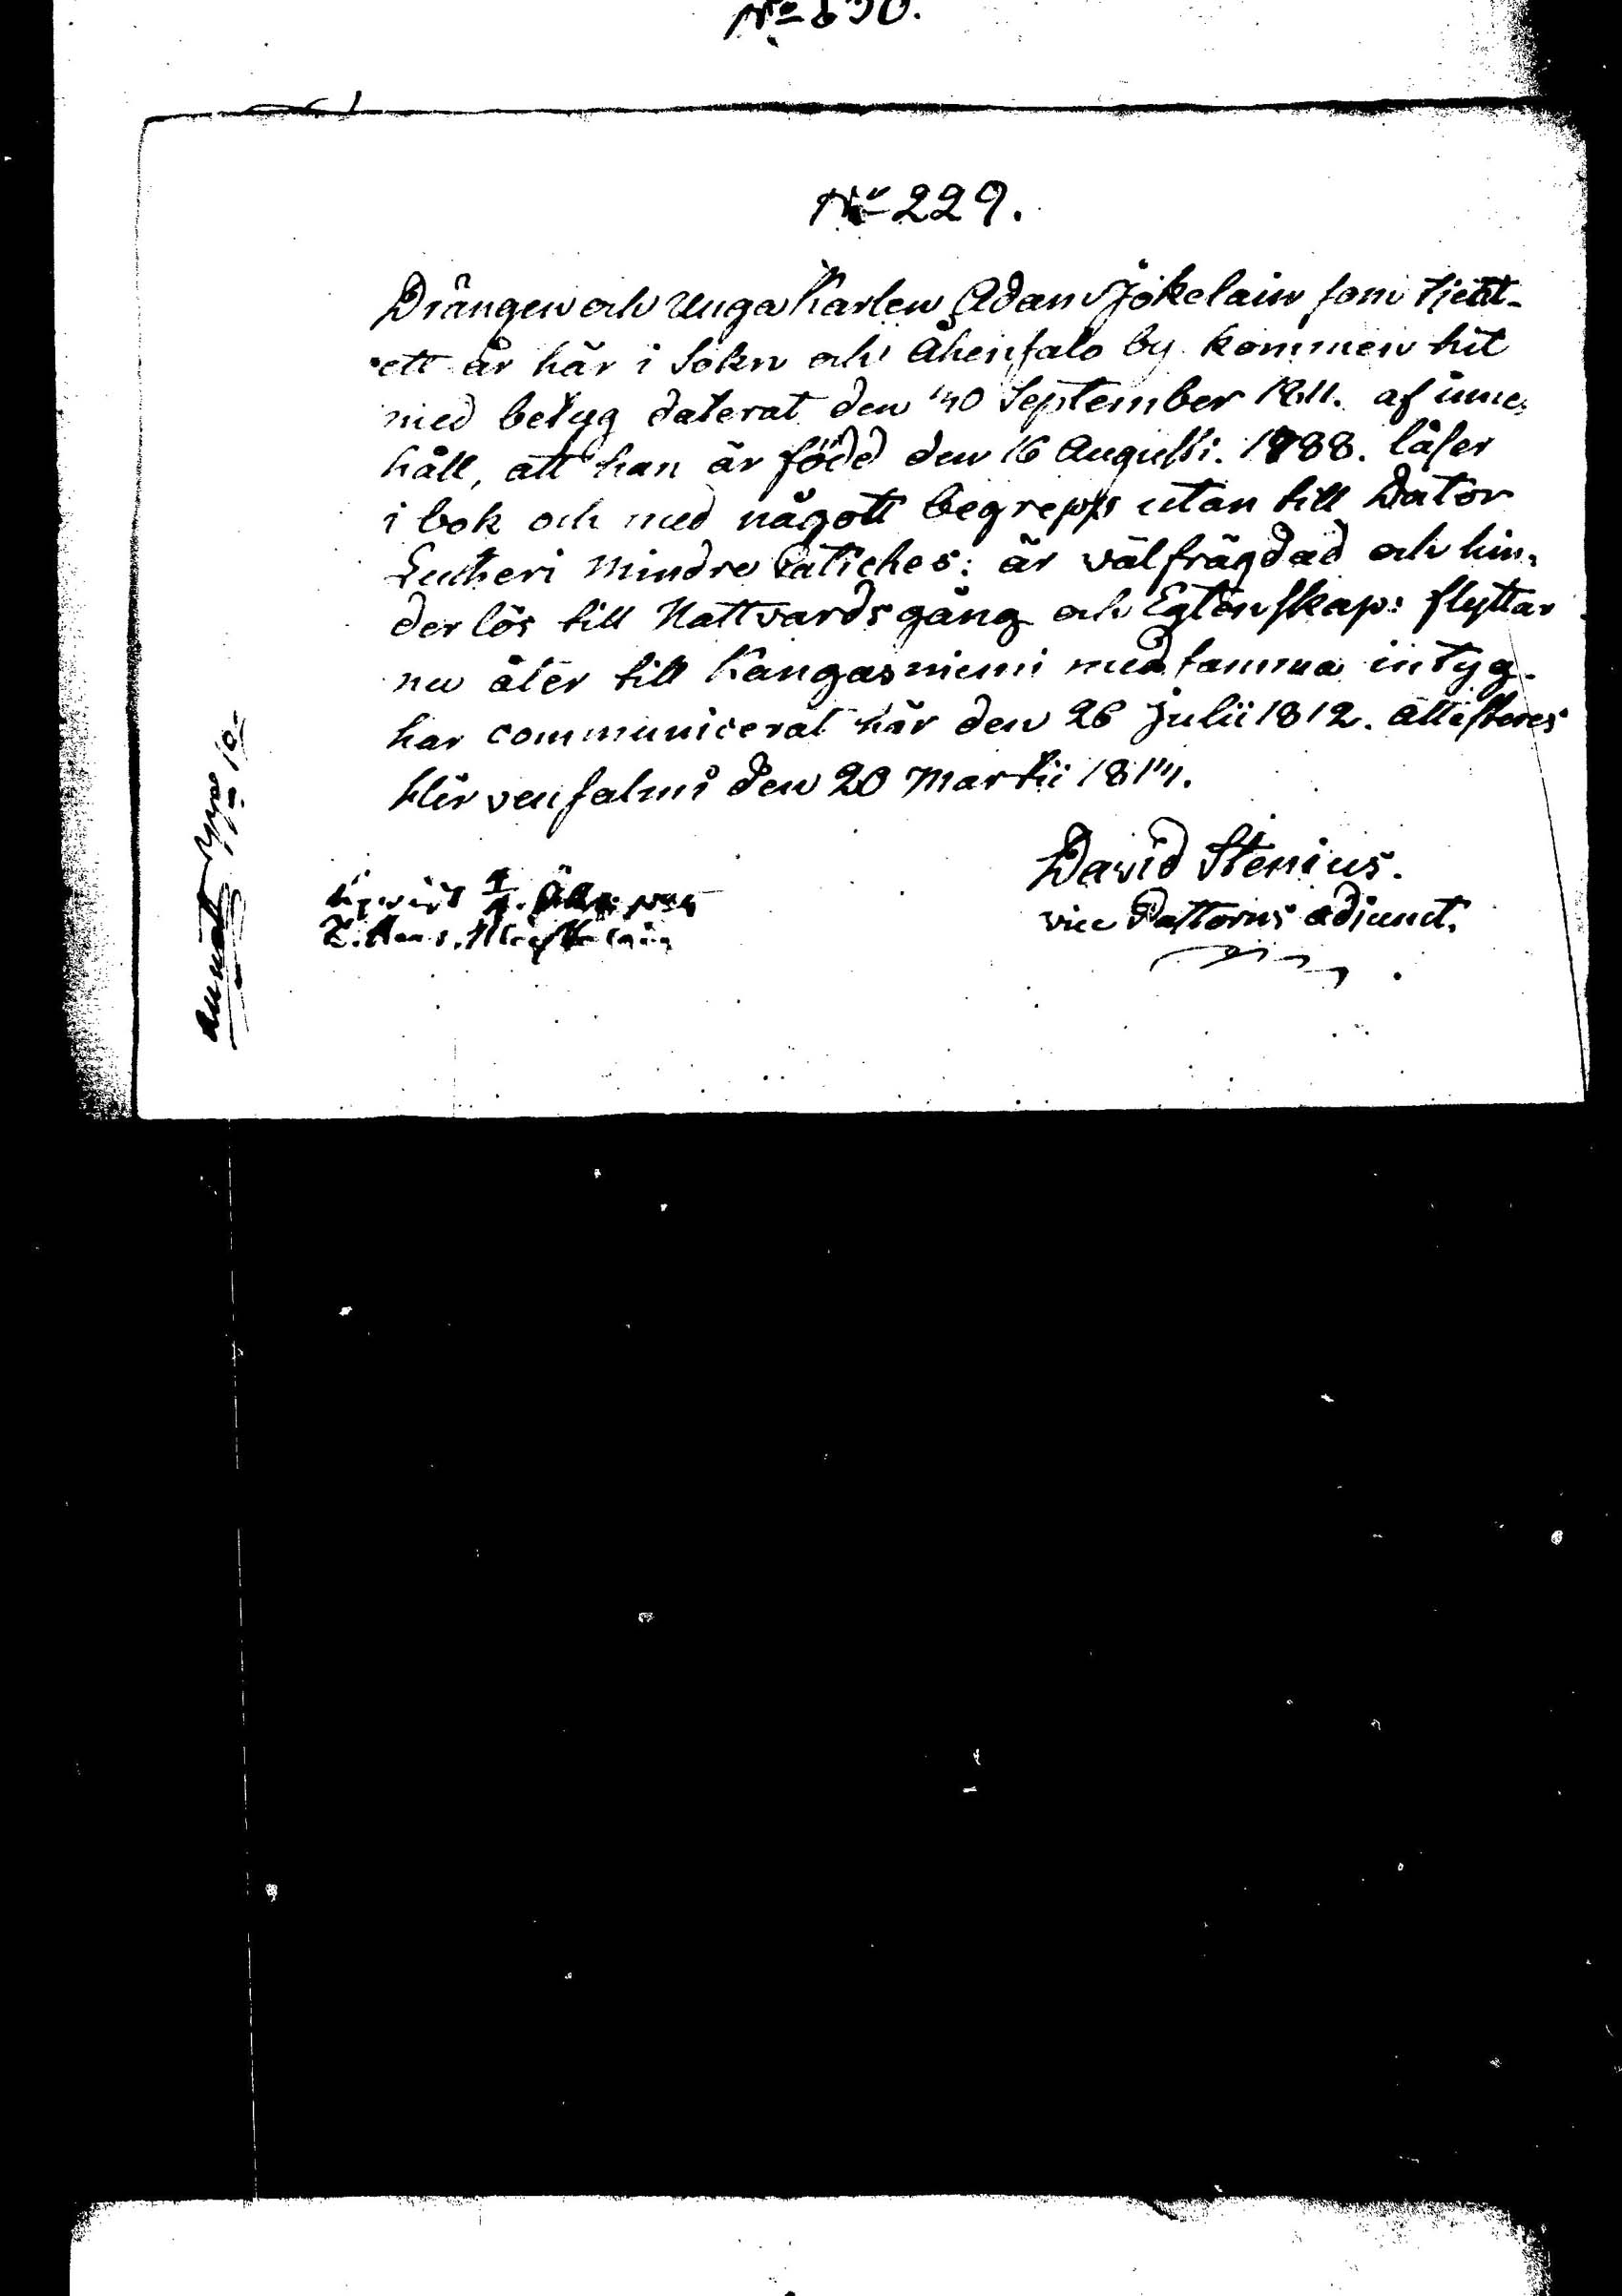 No 229.
Drängen och Unga Karlen Adam Jokelain som tjent
ett år här i Sokn och Åhensalo by kommen hit
med betyg daterat den 30 September 1811. af inne-
håll, att han är född den 16 Augusti. 1788. läser
i bok och med någott begrepp utan till Dator
Lutheri Mindre Catiches: är välfrägdad och hin-
derlös till Nattvardsgång och Egtenskap: flyttar
nu åter till Kangasniemi med samma intyg.
har communicerat här den 26 Julii 1812. Attesteres
Hirvensalmi den 20 Martii 181
David Stenius.
vice Pastorns adjunct.